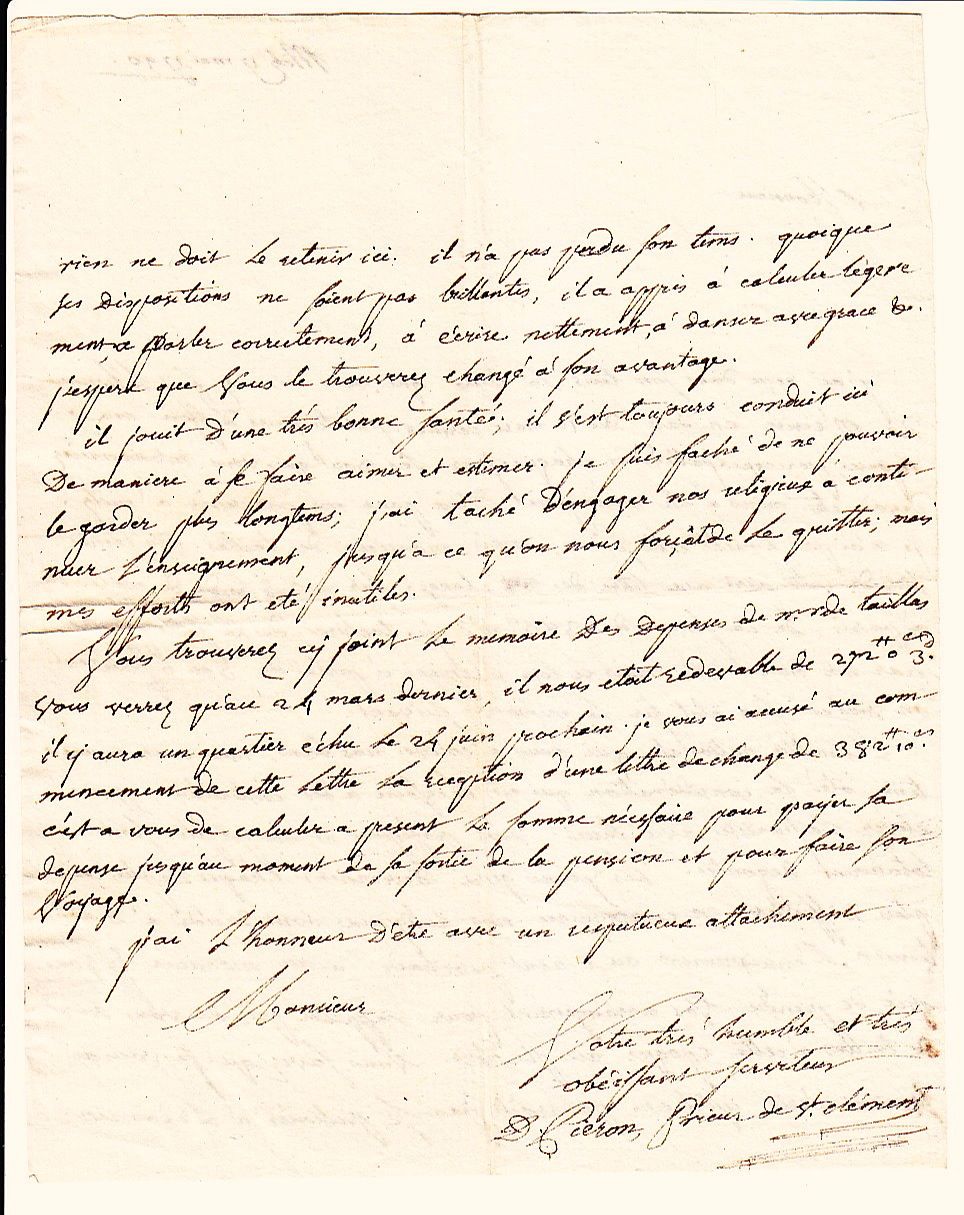 rien ne doit le retenir ici. il n'a pas perdu son tems. quoique
ses dispositions ne soient pas brillantes, il a appris à calculer légere
ment, a parler correctement, à écrire nettement, à danser avec grace &c.
j'espere que vous le trouverez changé à son avantage.
il jouit d'une très bonne santé; il s'est toujours conduit ici
de maniere à se faire aimer et estimer. je suis faché de ne pouvoir
le garder plus longtems; j'ai taché d'engager nos religieux à conti-
nuer l'enseignement, jusqu'a ce qu'on nous forçât de le quitter; mais
mes efforts ont eté inutiles.
Vous trouverez cy joint le memoire des depenses de mr. de taillas
vous verrez qu'au 24 mars dernier, il nous etoit redevable de 272# 0s 3d.
il y aura un quartier échu le 24 juin prochain. je vous ai accusé au com
mencement de cette lettre la reception d'une lettre de change de 382# 10s.
c'est a vous de calculer a present la somme nécessaire pour payer sa
depense jusqu'au moment de sa sortie de la pension et pour faire son
voyage.
j'ai l'honneur d'etre avec un respectueux attachement
Monsieur
Votre très humble et très
obéissant serviteur
D. Pieron, Prieur de st. clément